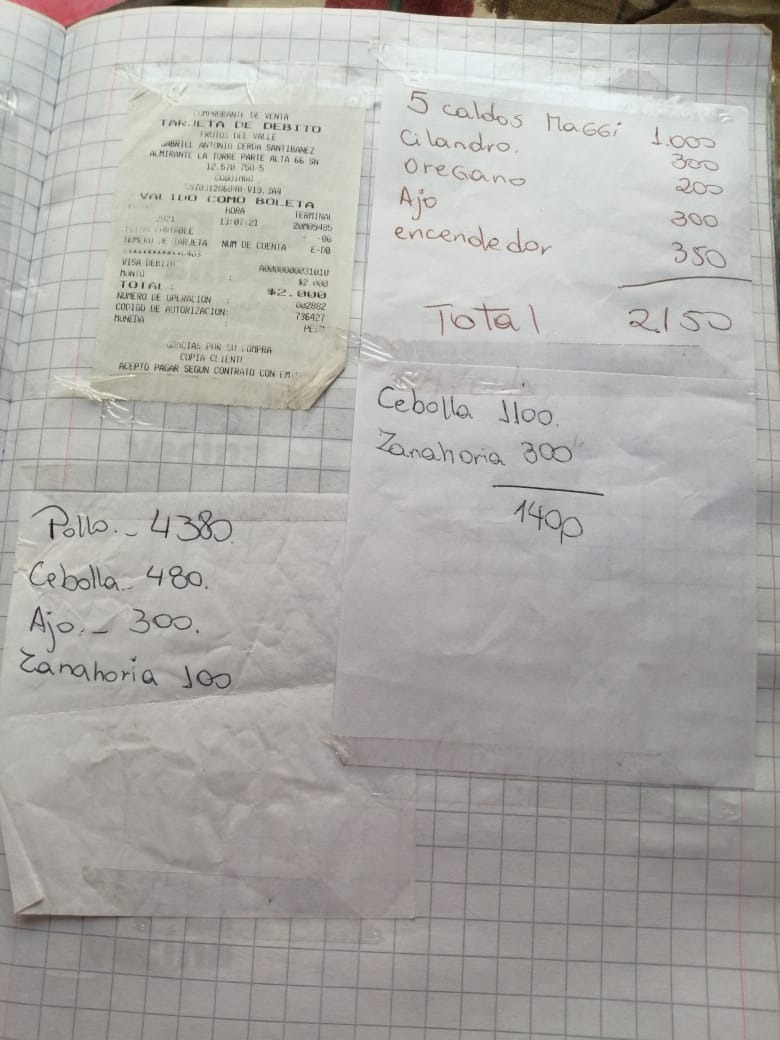 COMPROBANTE DE VENTA
TARJETA DE DEBITO
FRUTOS DEL VALLE
GABRIEL ANTONIO CERDA SANTIBANEZ
ALMIRANTE LA TORRE PARTE ALTA 66 SN
12.570.750-5
COQUIMBO
VALIDO COMO BOLETA
HORA TERMINAL
2021 13:07:21 20M09485
FECHA CONTABLE
NUMERO DE TARJETA NUM DE CUENTA E-DB
VISA DEBITO A0000000031010
MONTO : $2.000
TOTAL : $2.000
NUMERO DE OPERACION : 002882
CODIGO DE AUTORIZACION: 736427
MONEDA :
GRACIAS POR SU COMPRA
COPIA CLIENTE
ACEPTO PAGAR SEGUN CONTRATO CON
5 caldos MaGGi 1.000
Cilandro. 300
oreGano 200
Ajo 300
encendedor 350
Total 2.150
Cebolla 1100.
Zanahoria 300
1400
Pollo.- 4380.
Cebolla- 480.
Ajo.- 300.
Zanahoria 100